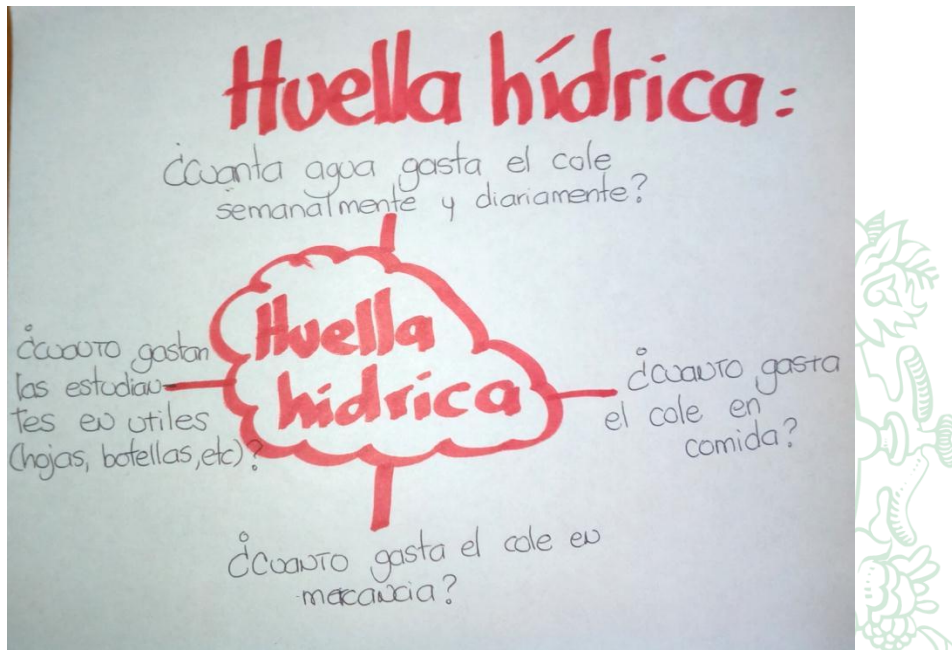 Huella hídrica:
¿Cuanta agua gasta el cole
semanalmente y diariamente?
Huella
hidrica
¿Cuanto gastan
las estudian
tes en utiles
(hojas, botellas, etc)?
¿Cuanto gasta
el cole en
comida?
¿Cuanto gasta el cole en
mercancia?